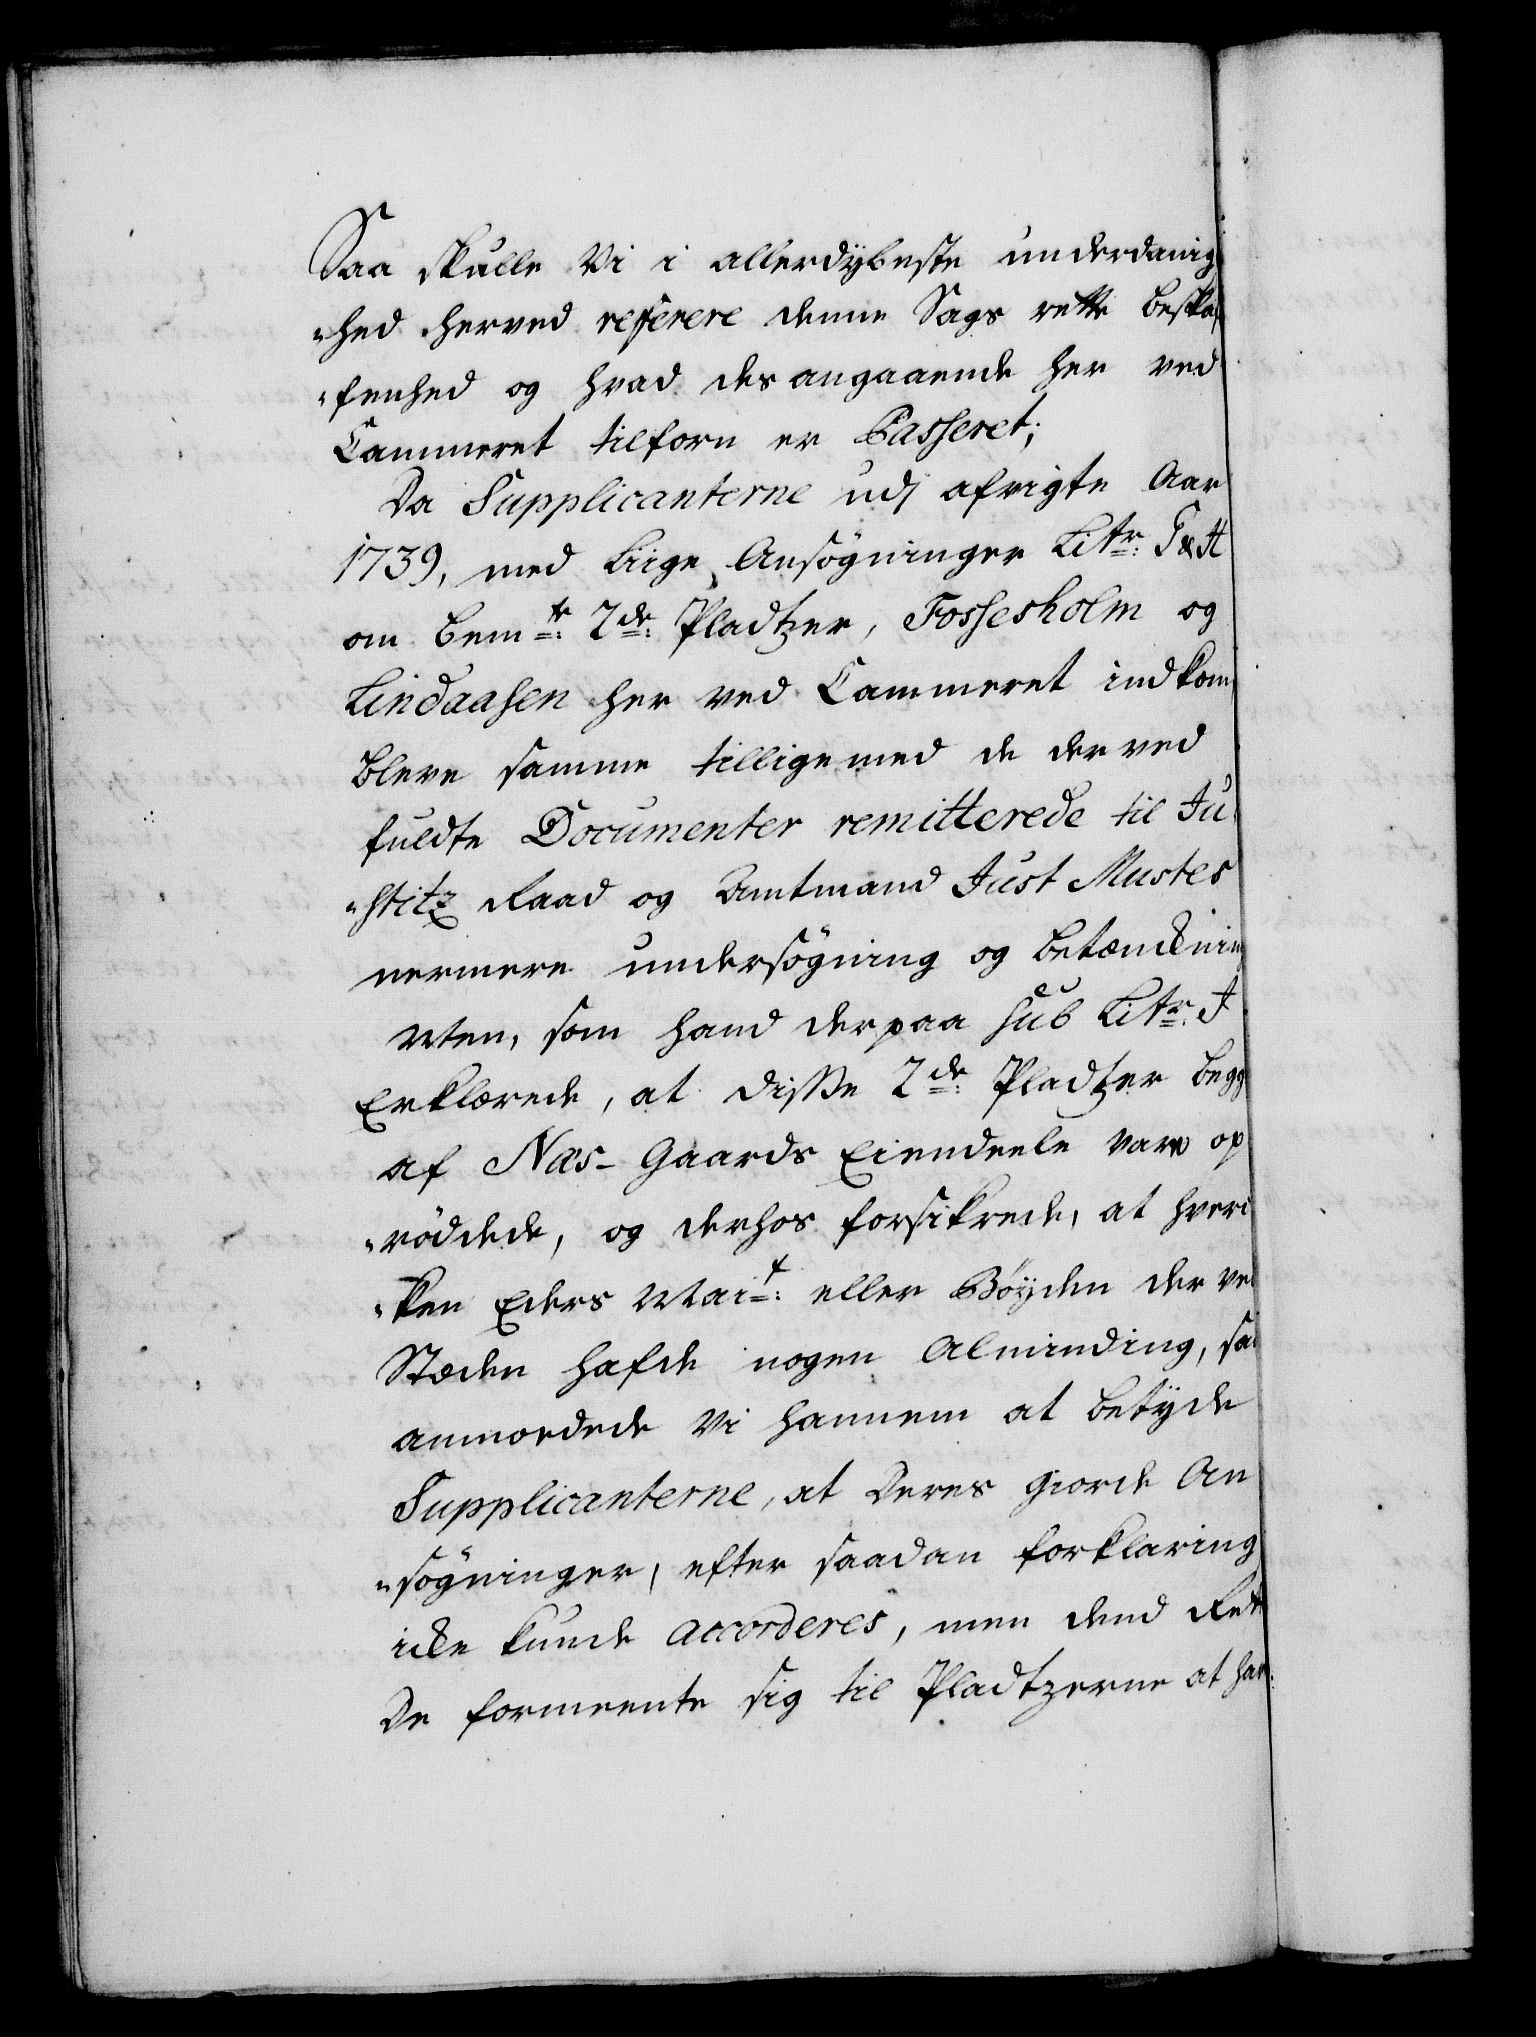 Saa skulle Vi i allerdybeste underdanig
"hed herved referere denne Sags rette beska
"fenhed og hvad des angaaende her ved
Cammeret tilforn er Passeret;
Da Supplicanterne udj afvigte Aar
1739, med Liige Ansøgninger Litr: G & H
om bemte: 2de: Pladtzer, Fossesholm og
Lindaasen her ved Cammeret indkom,
bleve samme tilligemed de derved
fuldte Documenter remitterede til Ju
"stitz Raad og Amtmand Just Mustes
nermere undersøgning og betænckning
Men, som hand derpaa sub Litr: I
Erklærede, at disse 2de: Pladtzer begg
af Næs-Gaards Eiendeele vare op
"røddede, og derhos forsikrede, at hver
"ken Eders Mait: eller Bøyden der ve
Stæden hafde nogen Alminding, saa
anmodede Vi hannem at betyde
Supplicanterne, at Deres giorde An
"søgninger, efter saadan forklaring
icke kunde accorderes, men dend Rett
De formeente sig til Pladtzerne at hav